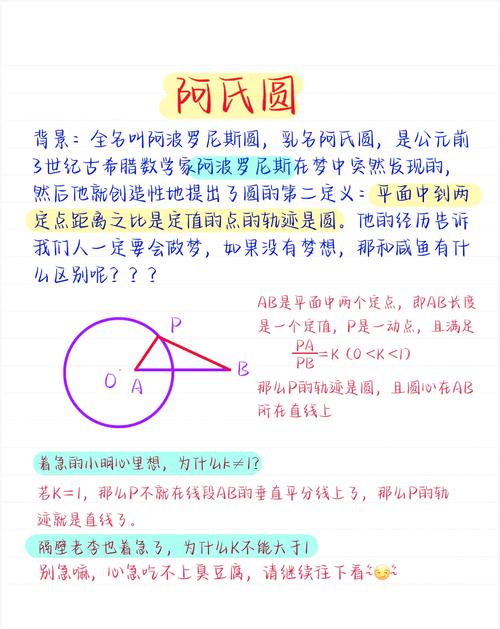 阿氏圆
背景：全名叫阿波罗尼斯圆，乳名阿氏圆，是公元前
3世纪古希腊数学家阿波罗尼斯在梦中突然发现的，
然后他就创造性地提出了圆的第二定义：平面中到两
定点距离之比是定值的点的轨迹是圆。他的经历告诉
我们人一定要会做梦，如果没有梦想，那和咸鱼有什
么区别呢？？？
P
O
A
B
AB是平面中两个定点，即AB长度
是一个定值，P是一动点，且满足
PA/PB=K（0<K<1）
那么P的轨迹是圆，且圆心在AB
所在直线上
着急的小明心里想，为什么k≠1?
若K=1，那么P不就在线段AB的垂直平分线上了，那么P的轨
迹就是直线了。
隔壁老李也着急了，为什么K不能大于1
别急嘛，心急吃不上臭豆腐，请继续往下看~